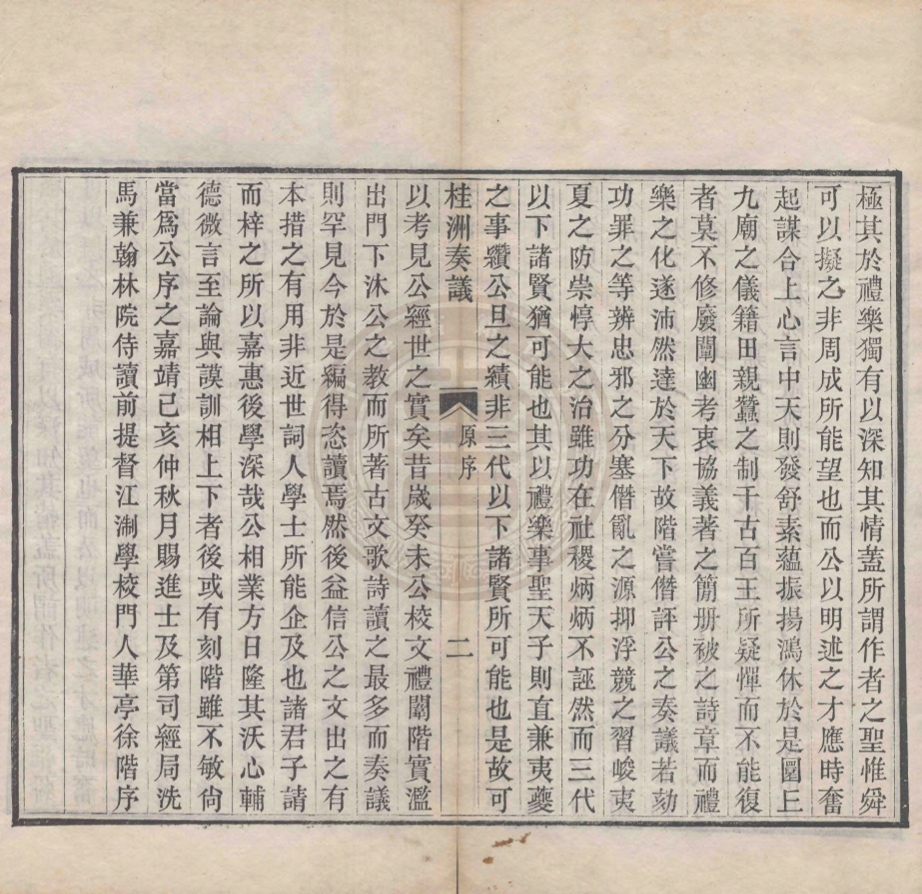 極其於禮樂獨有以深知其情蓋所謂作者之聖惟舜
可以擬之非周成所能望也而公以明述之才應時奮
起謀合上心言中天則發舒素蘊振揚鴻休於是圜丘
九廟之儀籍田親蠶之制千古百王所疑憚而不能復
者莫不修廢闡幽考衷協義著之簡册被之詩章而禮
樂之化遂沛然達於天下故階嘗僭評公之奏議若劾
功罪之等辨忠邪之分塞僭亂之源抑浮競之習峻夷
夏之防崇惇大之治雖功在社稷炳炳不誣然而三代
以下諸賢猶可能也其以禮樂事聖天子則直兼夷夔
之事纘公旦之績非三代以下諸賢所可能也是故可
桂洲奏議 原序 二
以考見公經世之實矣昔歲癸未公校文禮闈階實濫
出門下沐公之教而所著古文歌詩讀之最多而奏議
則罕見今於是編得恣讀焉然後益信公之文出之有
本措之有用非近世詞人學士所能企及也諸君子請
而梓之所以嘉惠後學深哉公相業方日隆其沃心輔
德微言至論與謨訓相上下者後或有刻階雖不敏尙
當爲公序之嘉靖己亥仲秋月賜進士及第司經局洗
馬兼翰林院侍讀前提督江淛學校門人華亭徐階序